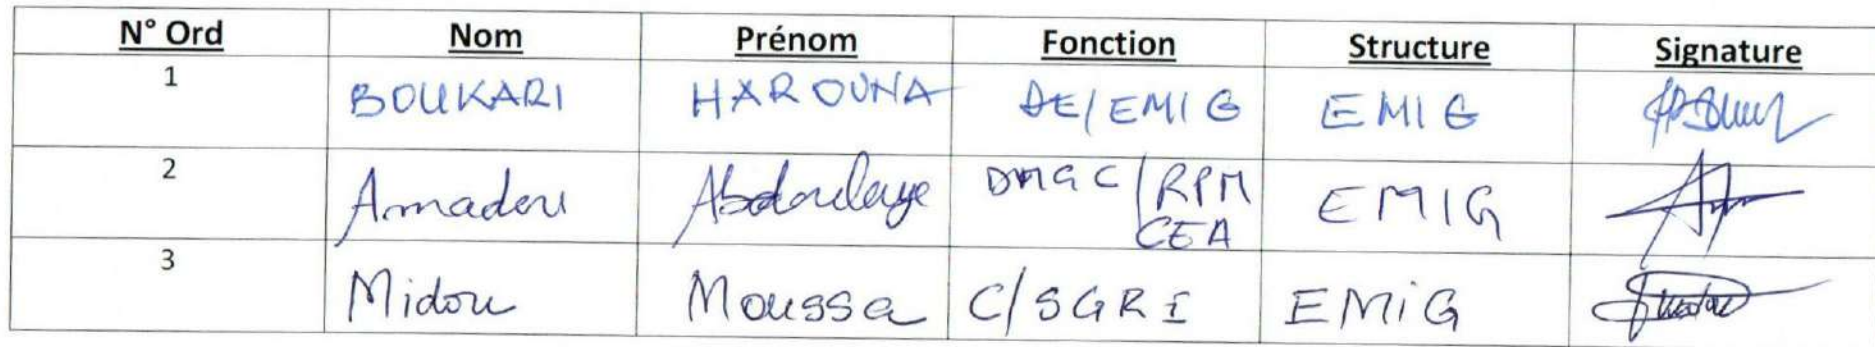 N° Ord Nom Prénom Fonction Structure Signature
1 BOUKARI HAROUNA DE/EMIG EMIG
2 Amadou Abdoulaye DMGC/RPM CEA EMIG
3 Midou Moussa C/SGRI EMiG